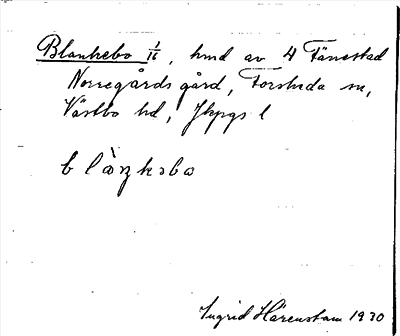 Blankebo 1/16, hmd av 4 Tånestad
Norregårds gård, Forsheda sn,
Västbo hd, Jkpgs l
blàŋkəbo
Ingrid Härenstam 1930